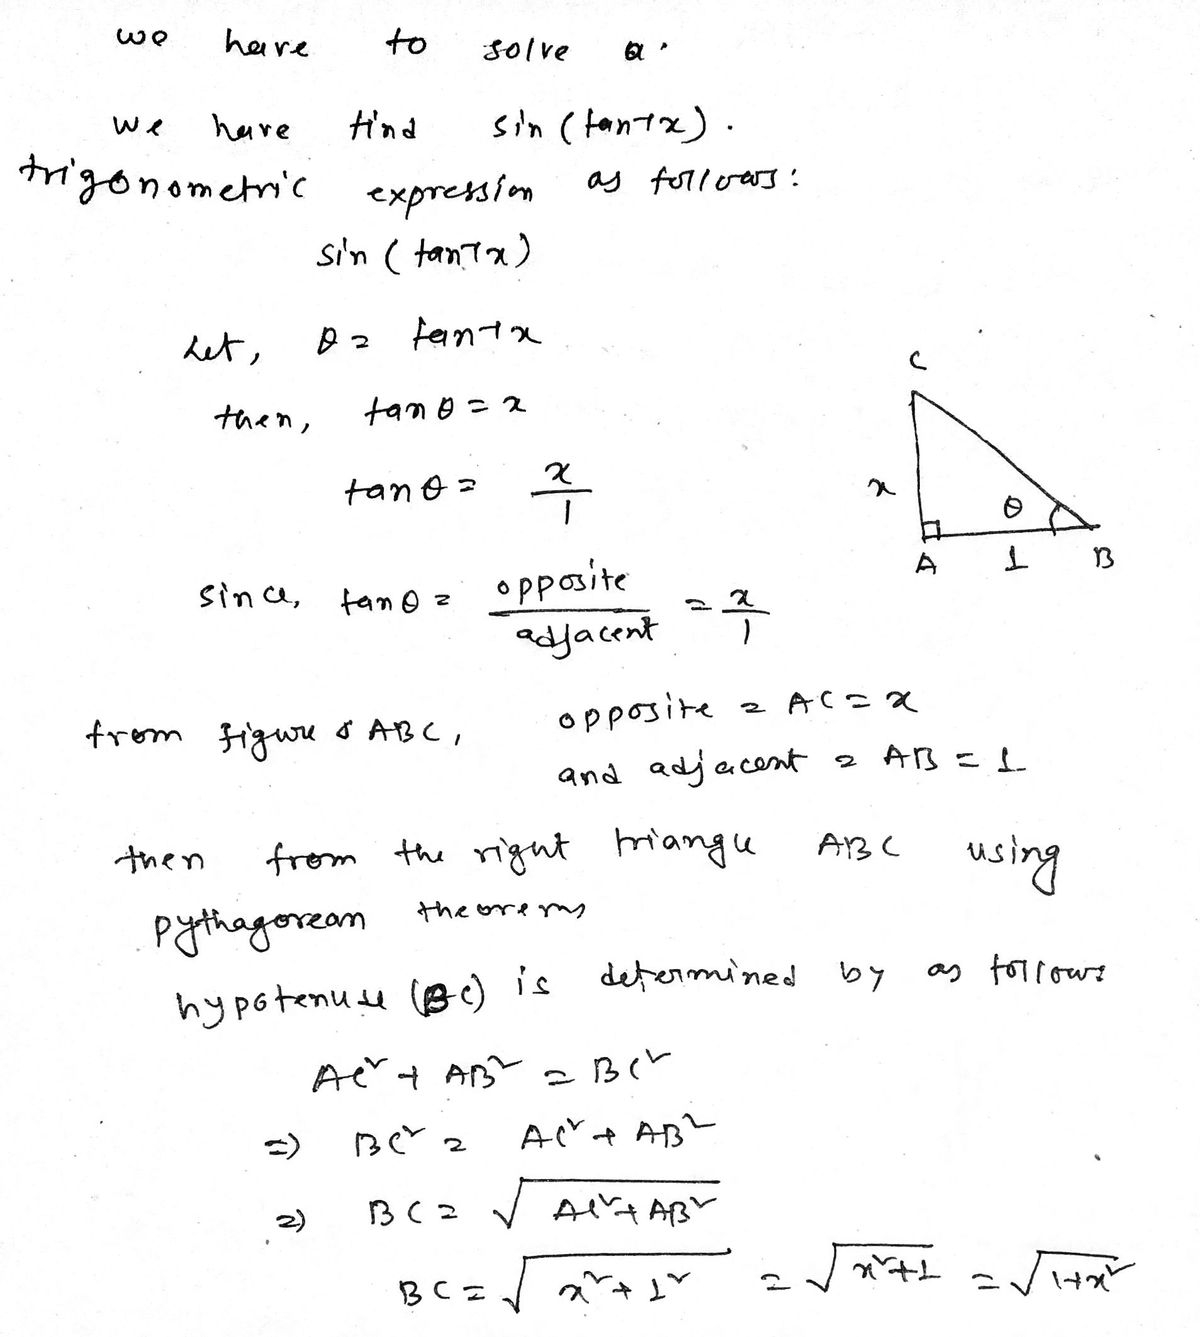 we have to solve a.
we have find sin (tan⁻¹x).
trigonometric expression as follows:
sin (tan⁻¹x)
Let, θ = tan⁻¹x
then, tan θ = x
tan θ = x/1
C
x
θ
A 1 B
since, tan θ = opposite/adjacent = x/1
from figure ABC, opposite = AC = x
and adjacent = AB = 1
then from the right triangle ABC using
pythagorean theorems
hypotenuse (BC) is determined by as follows
AC² + AB² = BC²
⇒ BC² = AC² + AB²
⇒ BC = √(AC² + AB²)
BC = √(x² + 1²) = √(x²+1) = √(1+x²)